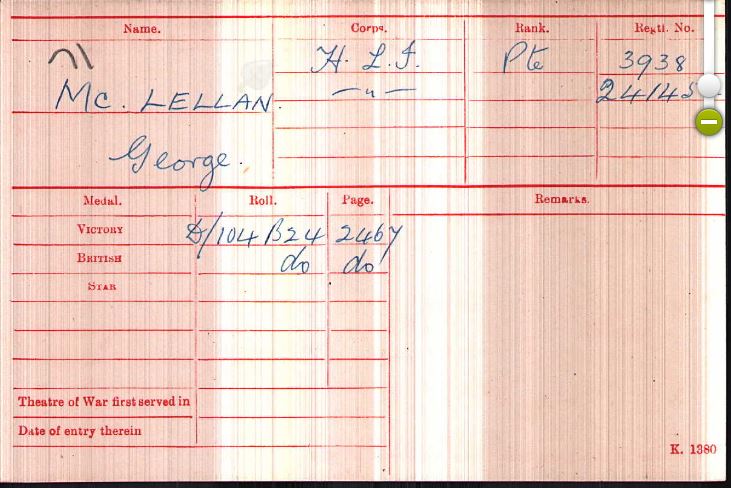 Name. Corps. Rank. Regtl. No.
H. L. I. Pte 3938
Mc. LELLAN. — " — 24145
George.
Medal. Roll. Page. Remarks.
VICTORY D/104 B24 2467
BRITISH do do
STAR
Theatre of War first served in
Date of entry therein
K. 1380